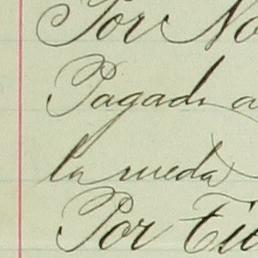 Por No
Pagado a
la rueda
Por Ti